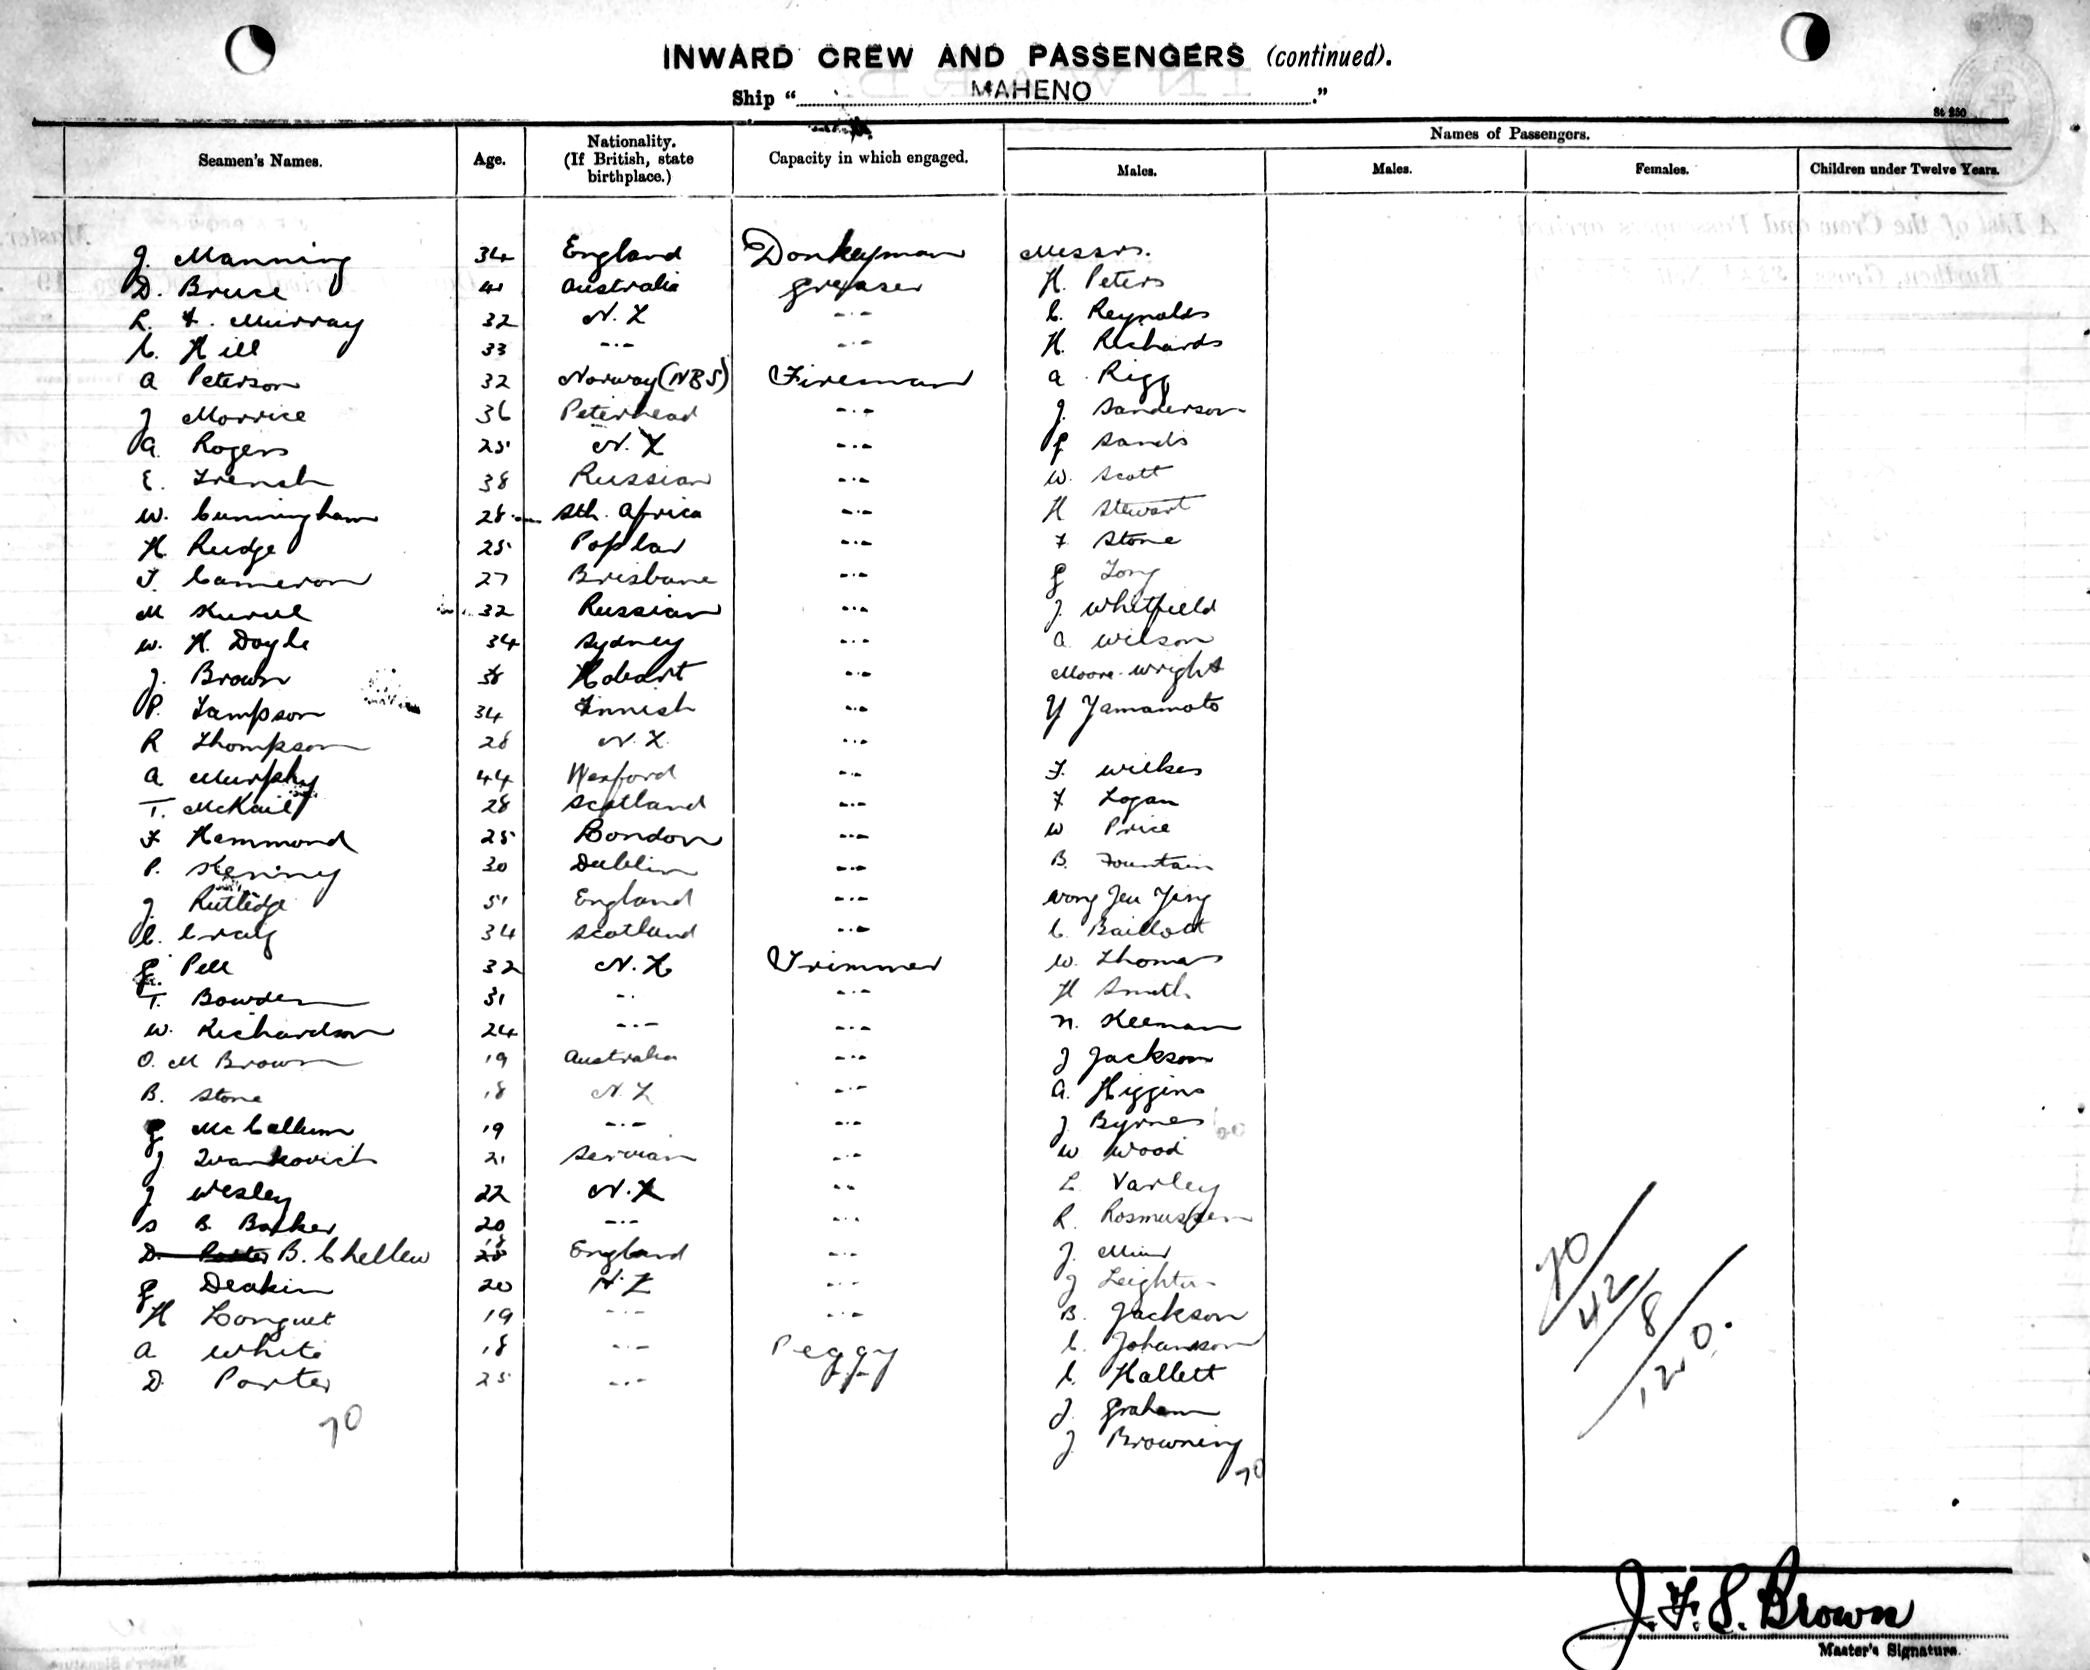 INWARD CREW AND PASSENGERS (continued).
Ship "MAHENO."
St 250
Seamen's Names. Age. Nationality. (If British, state birthplace.) Capacity in which engaged. Names of Passengers.
Males. Males. Females. Children under Twelve Years.
J. Manning 34 England Donkeyman Messrs.
D. Bruce 41 Australia Greaser H. Peters
R. F. Murray 32 N. Z -·- C. Reynolds
C. Hill 33 -·- -·- H. Richards
A Peterson 32 Norway (NBS) Fireman A. Rigg
J Morrice 36 Peterhead -·- J. Sanderson
A. Rogers 25 N. Z -·- G Sands
E. French 38 Russian -·- W. Scott
W. Cunningham 28 Sth. Africa -·- H Stewart
H. Rudge 25 Poplar -·- F Stone
J. Cameron 27 Brisbane -·- G Tong
M 32 Russian -·- J. Whitfield
W. H. Doyle 34 Sydney -·- A Wilson
J. Brown 38 Hobart -·- Moore-Wright
P. Tampson 34 Finnish -·- Y Yamamoto
R Thompson 28 N. Z. -·-
A Murphy 44 Wexford -·- F. Wilkes
T. McKail 28 Scotland -·- F Logan
F Hammond 25 London -·- W Price
P. Kenny 30 Dublin -·- B. Fountain
J. Rutledge 51 England -·- Wong Jeu
C. Craig 34 Scotland -·- C. Baillott
G Pell 32 N. Z Trimmer W. Thomas
T. Bowden 31 -·- -·- H Smith
W. Richardson 24 -·- -·- N. Keeman
O. M Brown 19 Australia -·- J Jackson
B. Stone 18 N. Z -·- A. Higgins
G McCallum 19 -·- -·- J Byrnes
J Ivankovich 21 Servian -·- W Wood
J Wesley 22 N. Z -·- L Varley
S B. Barker 20 -·- -·- R. Rosmussen
D. Porter B. Chellew 28 18 England -·- J.
G Deakin 20 N. Z -·- J Leighton
H Longuet 19 -·- -·- B. Jackson
A White 18 -·- Peggy C. Johansson
D. Porter 25 -·- -·- C. Hallett
70 J. Graham
J Browning
70
70/
42/
8/
120.
J. F. S. Brown
Master's Signature.